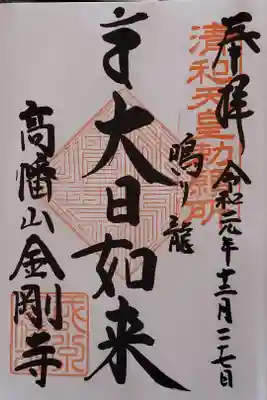 奉拝
令和元年十二月二七日
清和天皇勅願所
鳴り龍
大日如来
高幡山金剛寺